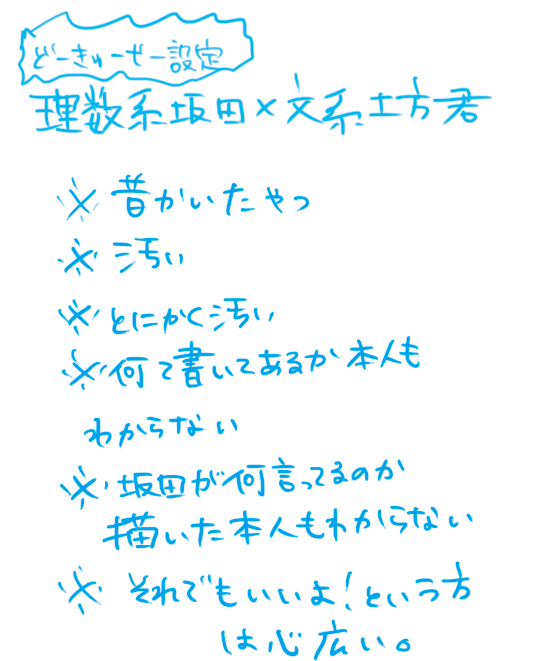 どーきゅーせー設定
理数系坂田×文系土方君
※ 昔かいたやつ
※ 汚い
※ とにかく汚い
※ 何て書いてあるか本人も
わからない
※ 坂田が何言ってるのか
描いた本人もわからない
※ それでもいいよ!という方
は心広い。